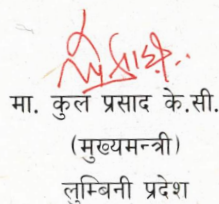 मा. कुल प्रसाद के.सी.
(मुख्यमन्त्री)
लुम्बिनी प्रदेश